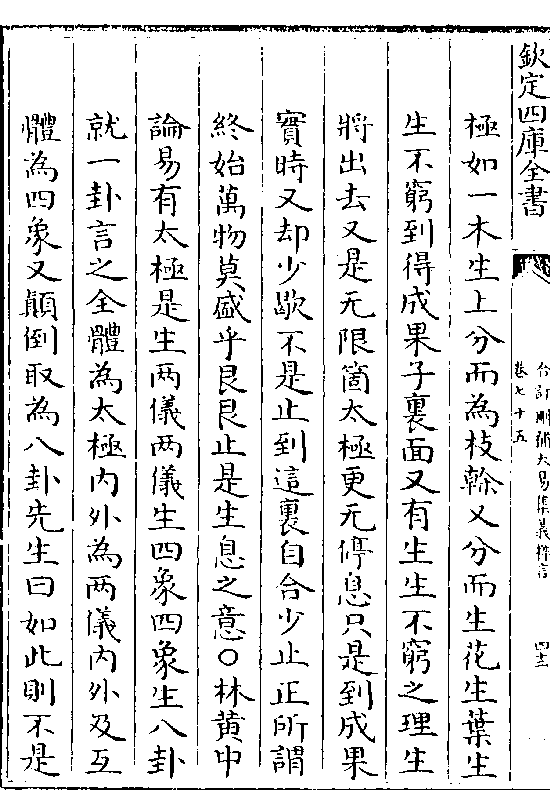 欽定四庫全書
合訂刪補大易集義粹言
卷七十五
極如一木生上分而為枝榦又分而生花生葉生
生不窮到得成果子裏面又有生生不窮之理生
將出去又是无限箇太極更无停息只是到成果
實時又却少歇不是止到這裏自合少止正所謂
終始萬物莫盛乎艮艮止是生息之意○林黄中
論易有太極是生两儀两儀生四象四象生八卦
就一卦言之全體為太極内外為两儀内外及互
體為四象又顛倒取為八卦先生曰如此則不是